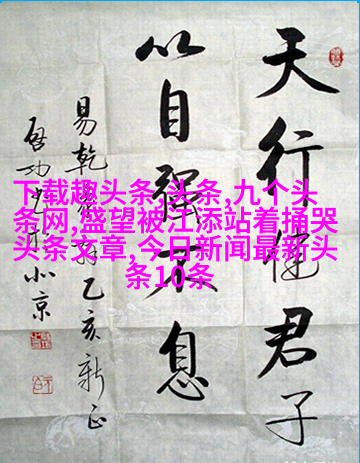 天行健君子
以自彊不息
易乾乙亥新正
啟功北京
下载趣头条,头条,九个头
条网,盛望被江添站着捅哭
头条文章,今日新闻最新头
条10条